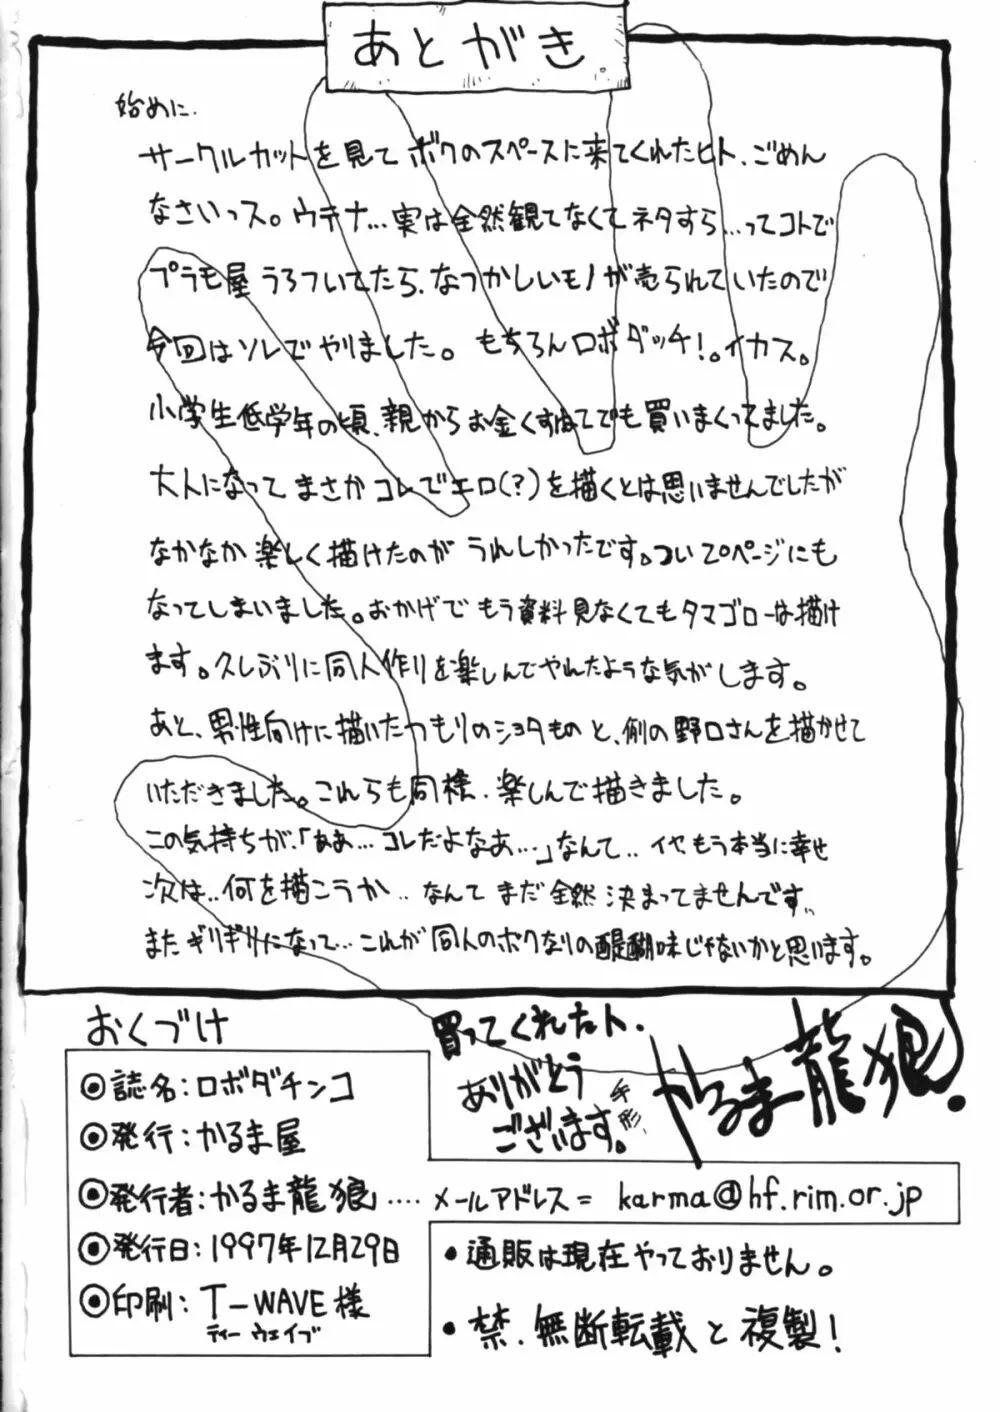 あとがき
始めに.
サークルカットを見てボクのスペースに来てくれたヒト、ごめん
なさいっス。ウテナ…実は全然観てなくてネタすら…ってコトで
プラモ屋うろついてたら、なつかしいモノが売られていたので
今回はソレでやりました。もちろんロボダッチ!。イカス。
小学生低学年の頃、親からお金くすねてでも買いまくってました。
大人になってまさかコレでエロ(?)を描くとは思いませんでしたが
なかなか楽しく描けたのがうれしかったです。ついて20ページにも
なってしまいました。おかげでもう資料見なくてもタマゴローは描け
ます。久しぶりに同人作りを楽しんでやれたような気がします。
あと、男性向けに描いたつもりのショタものと、例の野口さんを描かせて
いただきました。これらも同様、楽しんで描きました。
この気持ちが、「ああ…コレだよなあ…」なんて‥イヤもう本当に幸せ
次は‥何を描こうか‥なんてまだ全然決まってませんです‥
またギリギリになって…これが同人のボクなりの醍醐味じゃないかと思います。
おくづけ
◎誌名:ロボダチンコ
◎発行:かるま屋
◎発行者:かるま龍狼 ‥‥ メールアドレス= karma@hf.rim.or.jp
◎発行日:1997年12月29日
◎印刷:T-WAVE様
ティーウェイブ
買ってくれたヒト、
ありがとう
ございます。
手形、
かるま龍狼!
•通販は現在やっておりません。
•禁、無断転載と複製!